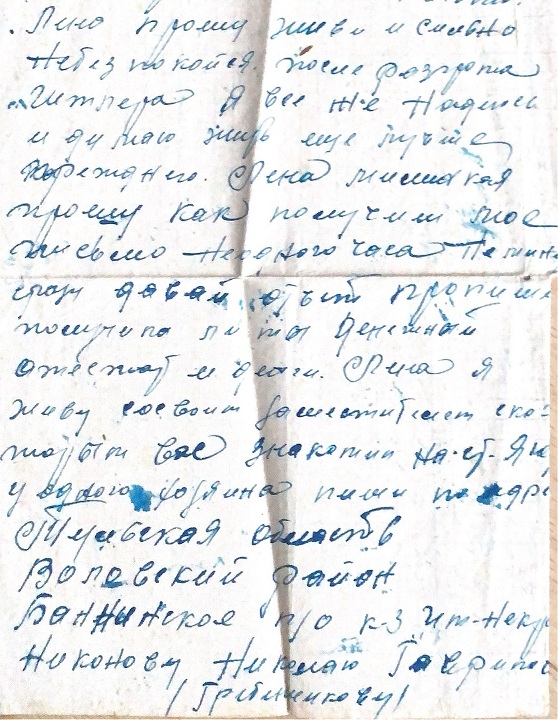 Лена прошу живи и сильно
Небез покойся. после разгрома
Гитлера Я все же Надеюсь
и думаю жить еще лучше
прежднего. Лена милинкая
прошу как получиш мое
письмо Неодного часа Не мин
сразу давай ответ пропиши
получила ли ты Денежный
атестат и деньги. Лена я
живу сосвоим заместителем
вас знаком На-ст-
у одного хозяина пиши по адре
Тульская область
Воловский район
Баннинское п/о к-з
Никонову Николаю Гаврило
/Гребенникову/